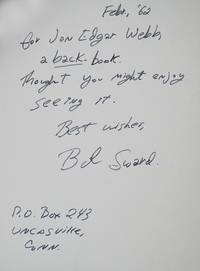 Febr., '62
for Jon Edgar Webb,
a back-book.
Thought you might enjoy
seeing it.
Best wishes,
Bob Sward.
P.O. Box 243
Uncasville,
Conn.